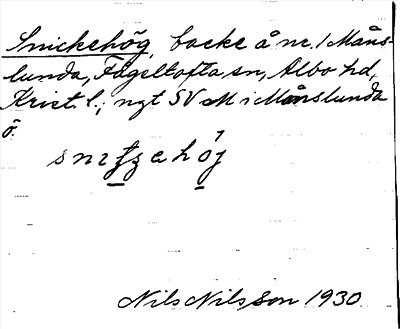 Snickehög, backe å nr 1 Måns-
lunda, Fågeltofta sn, Albo hd,
Krist. l.; ngt SV M i Månslunda
ö.
Nils Nilsson 1930